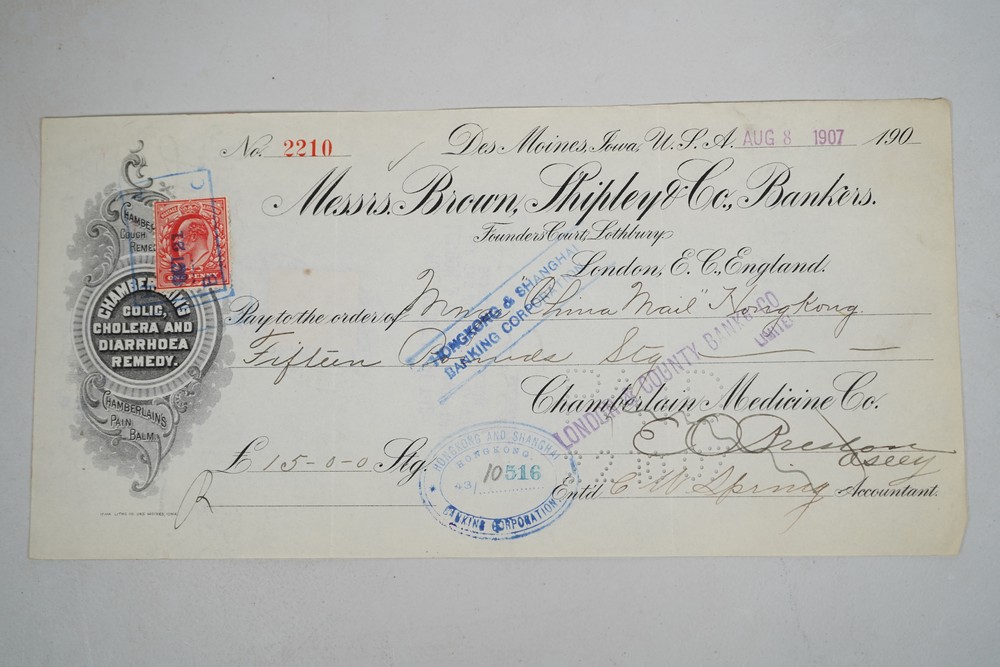 No. 2210
Des Moines, Iowa, U.S.A. AUG 8 1907 190
Messrs. Brown, Shipley & Co., Bankers.
Founders Court, Lothbury
London, E.C., England.
Pay to the order of "China Mail" Hongkong.
Fifteen Pounds Stg
Chamberlain Medicine Co.
E C Preston
£ 15-0-0 Stg.
Ent'd C W Spring Accountant.
CHAMBERLAIN'S
COLIC,
CHOLERA AND
DIARRHOEA
REMEDY.
CHAMBERLAIN'S
PAIN
BALM.
COUGH
HONGKONG & SHANGHAI
BANKING CORPORATION
COUNTY BANK
LIMITED
HONGKONG AND SHANGHAI
HONGKONG.
43/ 10516
BANKING CORPORATION
PENNY